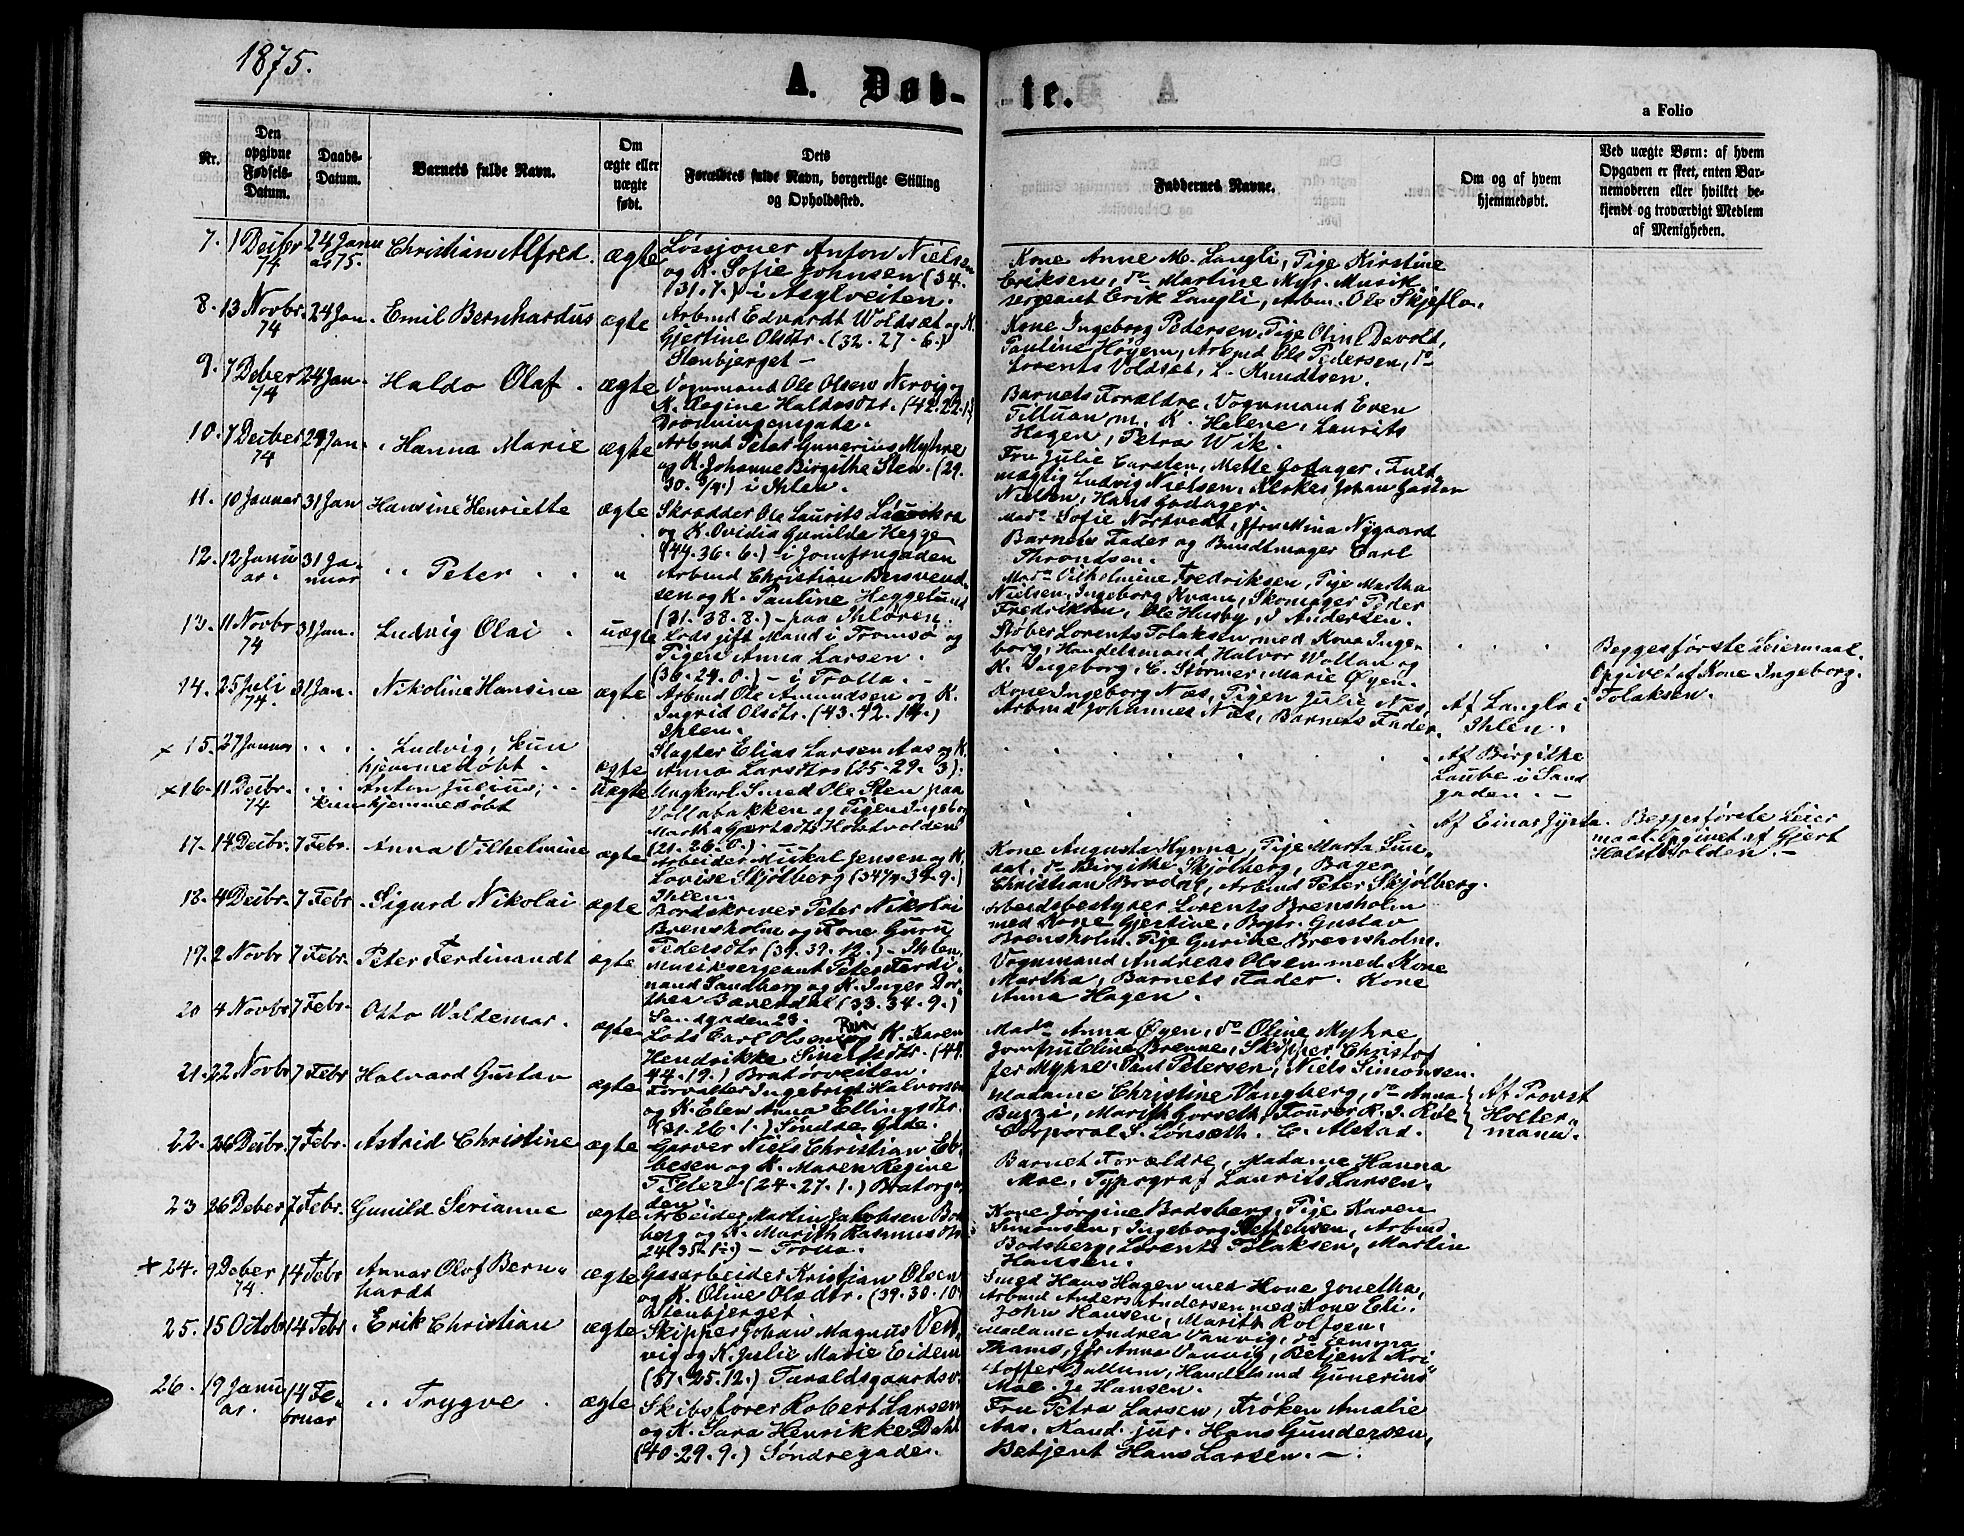 1875.
A. Døb-
te.
a Folio
Nr.
Den opgivne Fødsels-Datum.
Daabs-Datum.
Barnets fulde Navn.
Om ægte eller uægte født.
Dets Forældres fulde Navn, borgerlige Stilling og Opholdssted.
Faddernes Navne.
Om og af hvem hjemmedøbt.
Ved uægte Børn: af hvem Opgaven er skeet, enten Barnemoderen eller hvilket bekjendt og troværdigt Medlem af Menigheden.
7. 1 Decbr 74 24 Januar 75. Christian Alfred. ægte
Løssjoner Anton Nielsen
og K. Sofie Johnsen (34.
(31.7.) i Asylveiten.
Kone Anne M. Langli, Pige Kirstine
Eriksen, do Martine Myr. Musik
sergeant Erik Langli, Arbm. Ole Skjeflo.
8. 13 Novbr. 74 24 Jan. Emil Bernhardus ægte
Arbmd Edvardt Woldsæt og K.
Gjertine Olsdtr. (32.27.6.)
Stenbjerget -
Kone Ingeborg Pedersen, Pige Oline Devold,
Pauline Høyem, Arbmd Ole Pedersen, do
Lorents Voldsæt, L. Knudtsen.
9. 7 Deber 74 24 Jan. Haldo Olaf. ægte
Vognmand Ole Olsen Nervig og
K. Regine Haldosdtr. (42.22.1.)
Dronningensgade.
Barnets Forældre, Vognmand Even
Tilluan m. K. Helene, Laurits
Hagen, Petra Wik.
10. 7 Decber 74 24 Jan. Hanna Marie ægte
Arbmd Peter Gunerius Myhre
og K. Johanne Birgithe Sten. (29.
30. 3/4.) i Ihlen.
Fru Julie Carsten, Mette Godager, Fuld
mægtig Ludvig Nielsen, Klokker Johan Gustav
Nielsen, Hans Godager.
11. 10 Januar 31 Jan Hansine Henriette ægte
Skrædder Ole Laurits
og K. Ovidia Gunilde Hegge
(44.36.6.) - i Jomfrugaden
Mad. Sofie Nortvedt, Jfru Mina Nygaard
Barnets Fader og Bundtmager Carl
Throndsen.
12. 12 Januar. 31 Januar Peter
Arbmd Christian Bersvend-
sen og K. Pauline Heggelund
(31.38.8.) - paa Ihløren.
Mad. Vilhelmine Fredriksen, Pige Martha
Nielsen, Ingeborg Kvam, Skomager Peder
Fredriksen, Ole Husby, J Andersen.
13. 11 Novbr 74 31 Jan. Ludvig Olai uægte
Lods gift Mand i Tromsø og
Pigen Anna Larsen.
(36.29.0.) - i Trolla. -
Støber Lorents Tolaksen med Kone Inge-
borg, Handelsmand Halvor Wollan og
K. Ingeborg, C. Størmer, Marie Øyen.
Begges første Leiermaal.
Opgivet af Kone Ingeborg
Tolaksen.
14. 25 Juli 74. 31 Jan. Nikoline Hansine ægte
Arbmd Ole Amundsen og K.
Ingrid Olsdtr. (43.42.14.)
Ihlen.
Kone Ingeborg Næs, Pigen Julie Næs,
Arbmd Johannes Næs, Barnets Fader.
Af Langlo i
Ihlen.
+ 15. 27 Januar Ludvig, kun
hjemmedøbt. ægte
Slagter Elias Larsen Aas og K.
Anna Larsdtr (25.29.3).
Af Birgithe
Laube i Sand
gaden. -
+ 16. 11 Decbr. 74 Anton Julius,
kun hjemmedøbt uægte
Ungkarl Smed Ole Sten paa
Vollabakken og Pigen Ingeborg
Martha Gjertsdtr Holstvolden
(21.26.0.)
Af Einar Gjersta.
Begges første Leier
maal. Opgivet af Gjert
Holstvolden. -
17. 14 Decbr. 7 Febr. Anna Vilhelmine ægte
Arbeider Mikal Jensen og K.
Lovise Skjølberg (34 3/4.34.9.)
Ihlen.
Kone Augusta Hynne, Pige Marta Sun-
dal, do Birgithe Skjølberg, Bager
Christian Brodal, Arbmd Peter Skjølberg.
18. 4 Decbr. 7 Febr Sigurd Nikolai ægte
Bordskriver Peter Nikolai
Brensholm og Kone Guru
Pedersdtr (39.39.12.) - Ihlen.
Arbeidsbestyrer Lorents Brensholm
med Kone Gjertine, Bogtr. Gustav
Brensholm. Pige Gurine Brensholm.
19. 2 Novbr 7 Febr. Peter Ferdinandt ægte
Musiksergeant Peter Ferdi-
nand Sandberg og K. Inger Dor-
thea Bævendal (33.34.9.)
Sandgaden 28.
Vognmand Andreas Olsen med Kone
Martha, Barnets Fader. Kone
Anna Hagen.
20 4 Novbr. 7 Febr. Otto Waldemar. ægte
Lods Carl Olsen og K. Karen
Hendrikke Sivertsdtr. (44.
44.19.) Bratørveiten.
Mad. Anna Øyen, do Oline Myhre
Jomfru Eline Brenne, Skipper Christof
fer Myhre. Paul Petersen, Niels Simonsen.
21. 22 Novbr 7 Febr Halvard Gustav ægte
Forvalter Ingebrigt Halvorsen
og K. Elen Anna Ellingsdtr.
(31.26.1.) Søndre Gade.
Madame Christine Vangberg, do Anna
Buzzi, Marith Gorseth, Fourer R. J. Roe
Corporal S. Lønsæth. C. Alstad.
Af Provst
Holter-
mann.
22. 26 Decbr. 7 Febr. Astrid Christine ægte
Garver Niels Christian Eb-
besen og K. Maren Regine
(24.27.1.) Bratørga-
den
Barnet Forældre, Madame Hanna
Moe, Typograf Laurits Larsen.
23 26 Deber 7 Febr. Gunild Serianne ægte
Arbeider Martin Jakobsen Bod
berg og K. Marith Rasmusdtr.
24.35 1.) - Trolla.
Kone Jørgine Bodsberg, Pige Karen
Simonsen, Ingeborg Steffensen, Arbmd
Bodsberg, Lorents Tolaksen, Martin
Hansen.
+ 24. 9 Deber 74. 14 Febr Annar Olof Bern-
hardt ægte
Gasarbeider Kristian Olsen
og K. Oline Olsdtr. (39.30.10.
Stenbjerget
Smed Hans Hagen med Kone Jonetha,
Arbmd Anders Andersen med Kone Eli.
John Hansen, Marith Rolfsen.
25. 15 Octobr 14 Febr. Erik Christian ægte
Skipper Johan Magnus Ven-
vig og K. Julie Marie Eidem
(37.25.12.) Taraldsgaardsv.
Madame Andrea Vanvig, do Emma
Thams, Jfr Anna Vanvig, Betjent Kri
stoffer Dullum, Handelsmd Gunerius
Moe. Je Hansen.
26. 19 Januar. 14 Februar Trygve. ægte
Skibsfører Robert Larsen
og K. Sara Henrikke Dahl
(40.29.9.) Søndregade.
Fru Petra Larsen, Frøken Amalie
Aas, Kand. jur. Hans Gundersen,
Betjent Hans Larsen. -